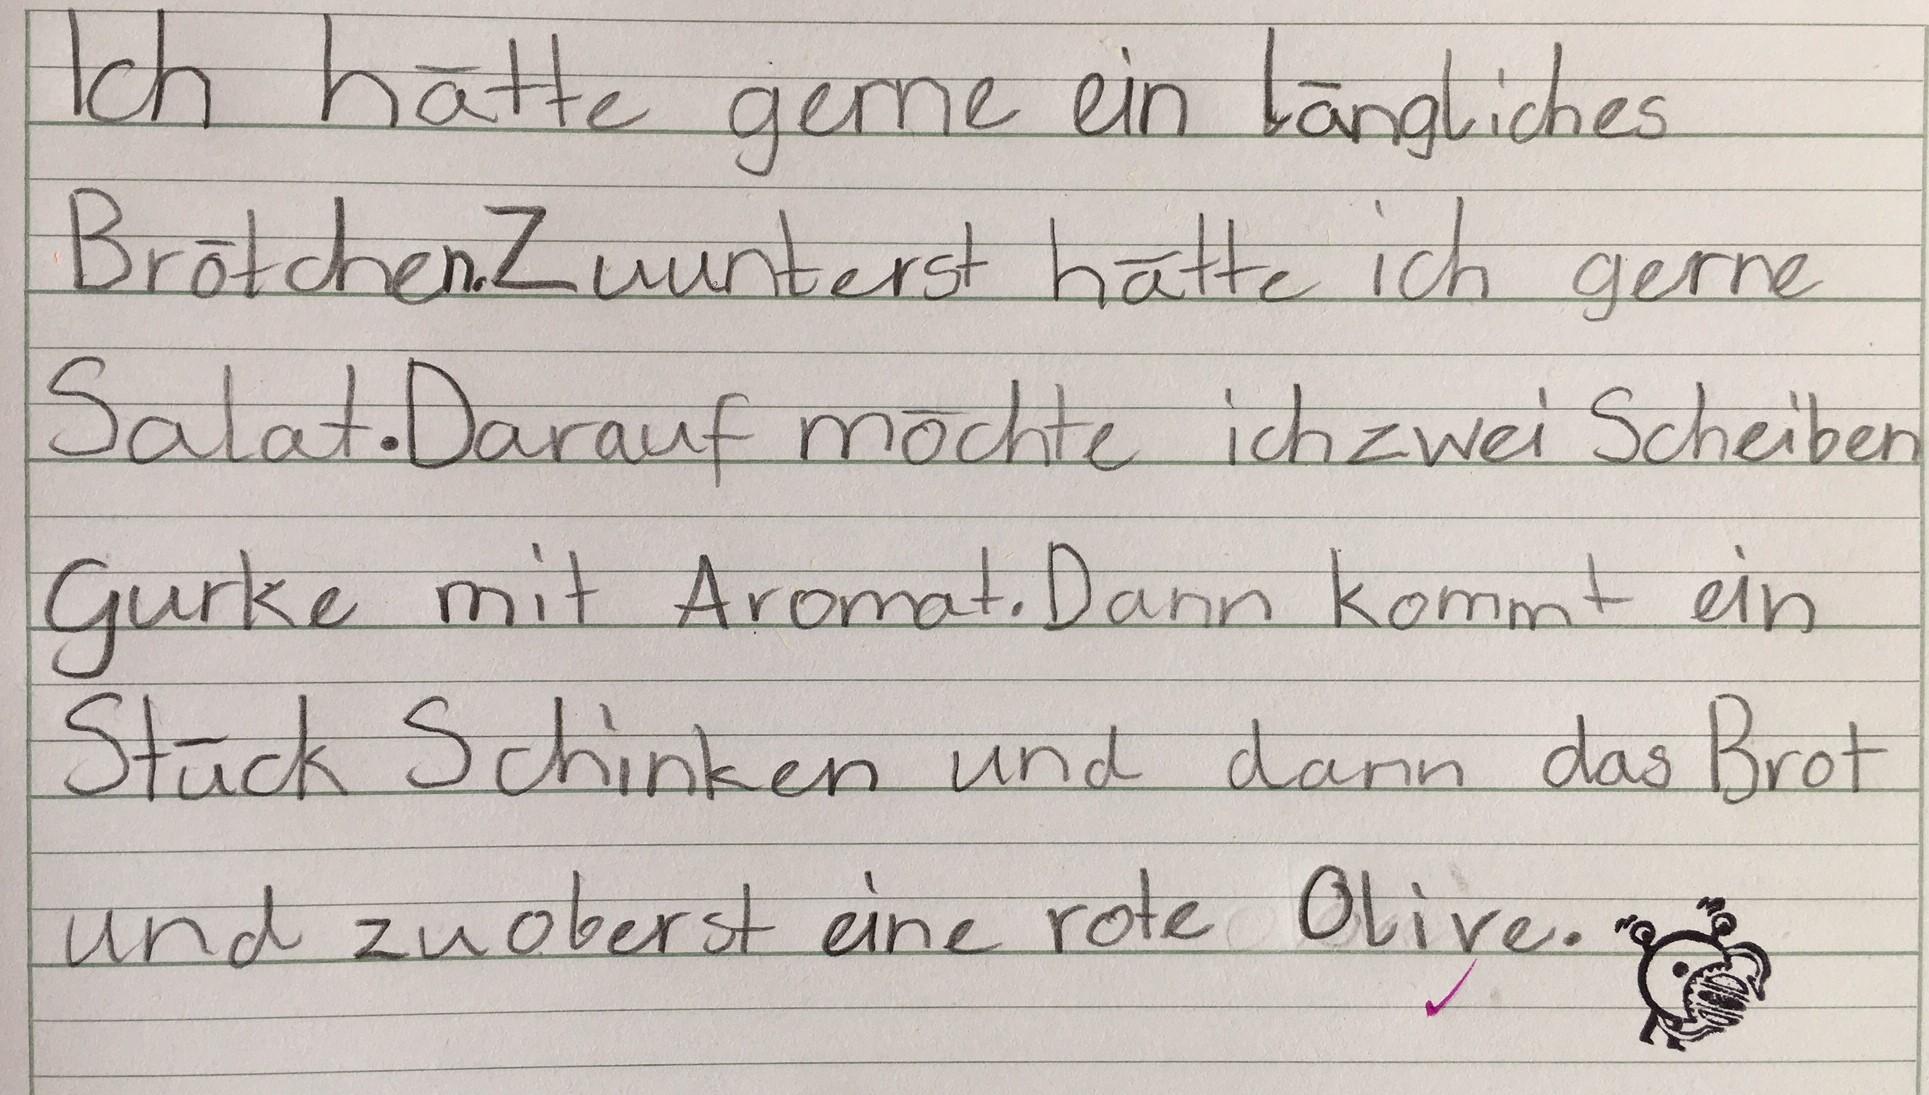 Ich hätte gerne ein längliches
Brötchen. Zuunterst hätte ich gerne
Salat. Darauf möchte ich zwei Scheiben
Gurke mit Aromat. Dann kommt ein
Stück Schinken und dann das Brot
und zuoberst eine rote Olive.